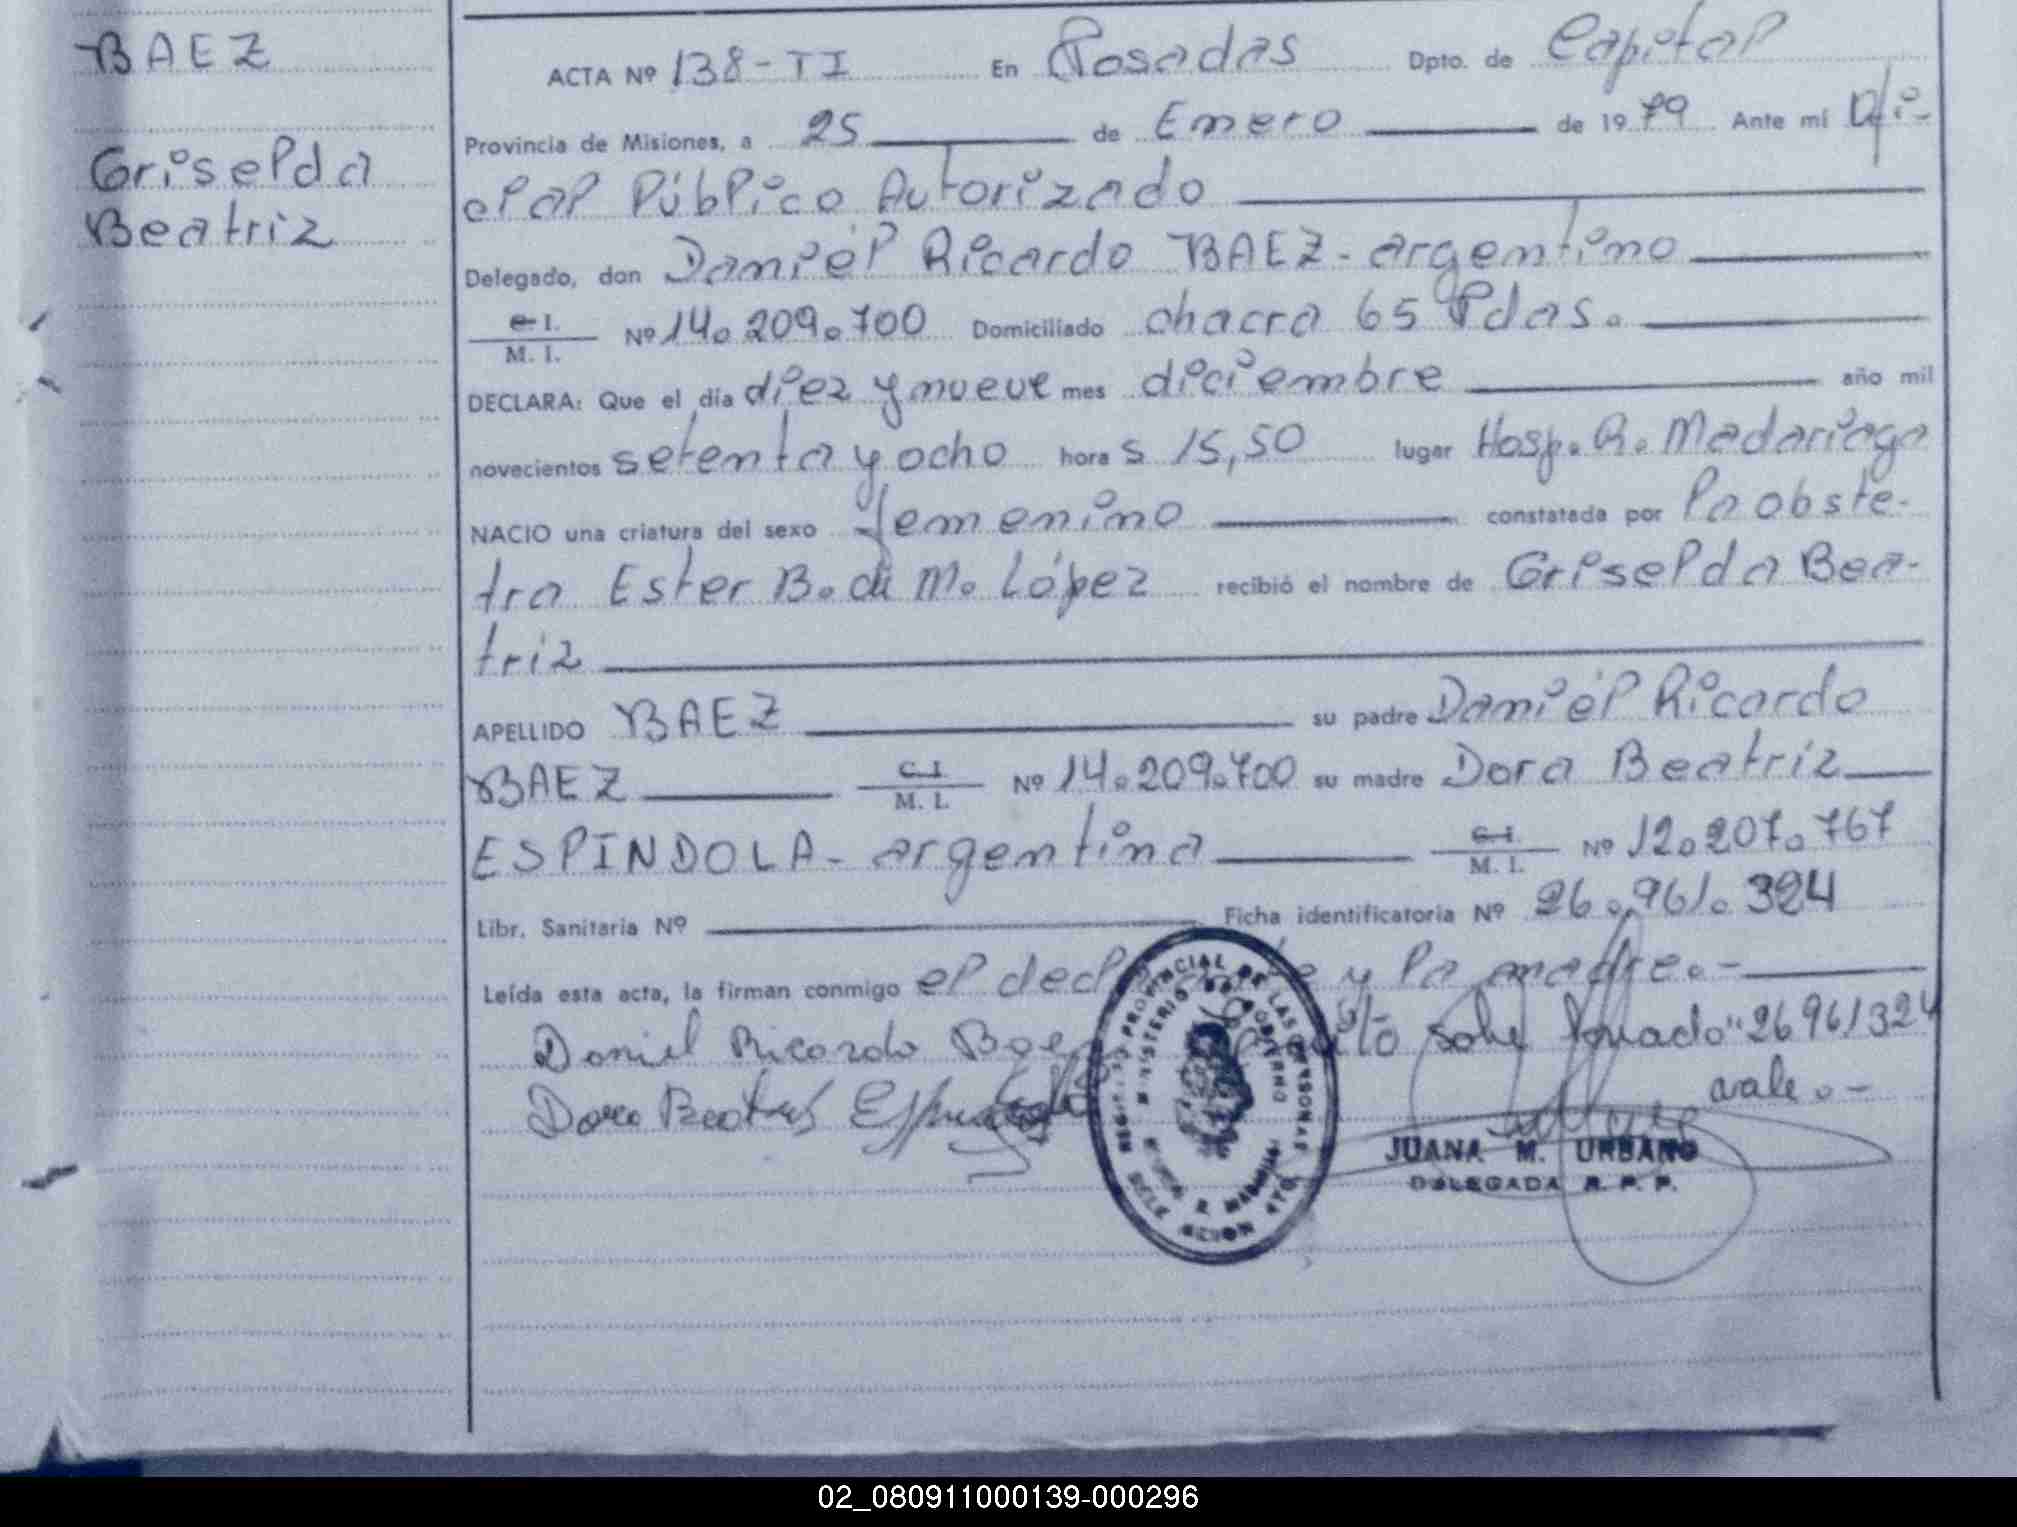 BAEZ
Griselda
Beatriz
ACTA Nº 138-TI En Posadas Dpto. de Capital
Provincia de Misiones, a 25 de Enero de 1979 Ante mí Ofi-
cial Público Autorizado
Delegado, don Daniél Ricardo BAEZ - argentino
C.I. M. I. Nº 14.209.700 Domiciliado chacra 65 Pdas.
DECLARA: Que el día diez y nueve mes diciembre año mil
novecientos setenta y ocho hora s 15,50 lugar Hosp. R. Madariaga
NACIO una criatura del sexo femenino constatada por la obste-
tra Ester B. di M. López recibió el nombre de Griselda Bea-
triz
APELLIDO BAEZ su padre Daniél Ricardo
BAEZ C.I. M. I. Nº 14.209.700 su madre Dora Beatriz
ESPINDOLA - argentina C.I. M. I. Nº 12.207.767
Libr. Sanitaria Nº Ficha identificatoria Nº 26.961.324
Leída esta acta, la firman conmigo el y la madre.-
Daniel Ricardo Baez sobre "26961324
Dora Beatriz vale.-
REGISTRO PROVINCIAL DE LAS PERSONAS
MINISTERIO DE GOBIERNO
JUANA M. URBANO
DELEGADA R. P. P.
02_080911000139-000296